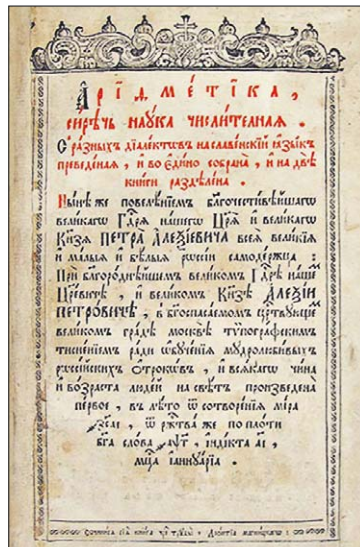 Арїѳметїка,
сирѣчь наука числителная.
С разныхъ дїалектовъ на славенскїй ꙗзыкъ
преведеная, и во едино собрана, и на двѣ
книги раздѣлена.
Нынѣ же повелѣнїемъ бл҃гочестивѣйшагѡ
великагѡ Гд҃ря нашегѡ Цр҃я и великагѡ
Кн҃зя ПЕТРА АЛЕѮЇЕВИЧА всея великїя
и малыя и бѣлыя рѡссїи самодержца:
При бл҃городнѣйшемъ великомъ Гд҃рѣ нашемъ
Цр҃евичѣ, и великомъ Кн҃зѣ АЛЕѮЇИ
ПЕТРОВИЧѢ, в бг҃оспасаемомъ цр҃ствующемъ
великомъ градѣ москвѣ тѵпографскимъ
тисненїемъ ради ѡбученїя мудролюбивыхъ
рѡссїйскихъ отрокѡвъ, и всякагѡ чина
и возраста людей на свѣтъ произведена
первое, в лѣто ѿ сотворенїя мїра
҂зсаї, ѿ рж҃тва же по плоти
бг҃а слова ҂аѱг, їндїкта аї,
мц҃а їаннуарїа.
сочинися сїя книга чрез труды Леонтїа магницкагѡ: